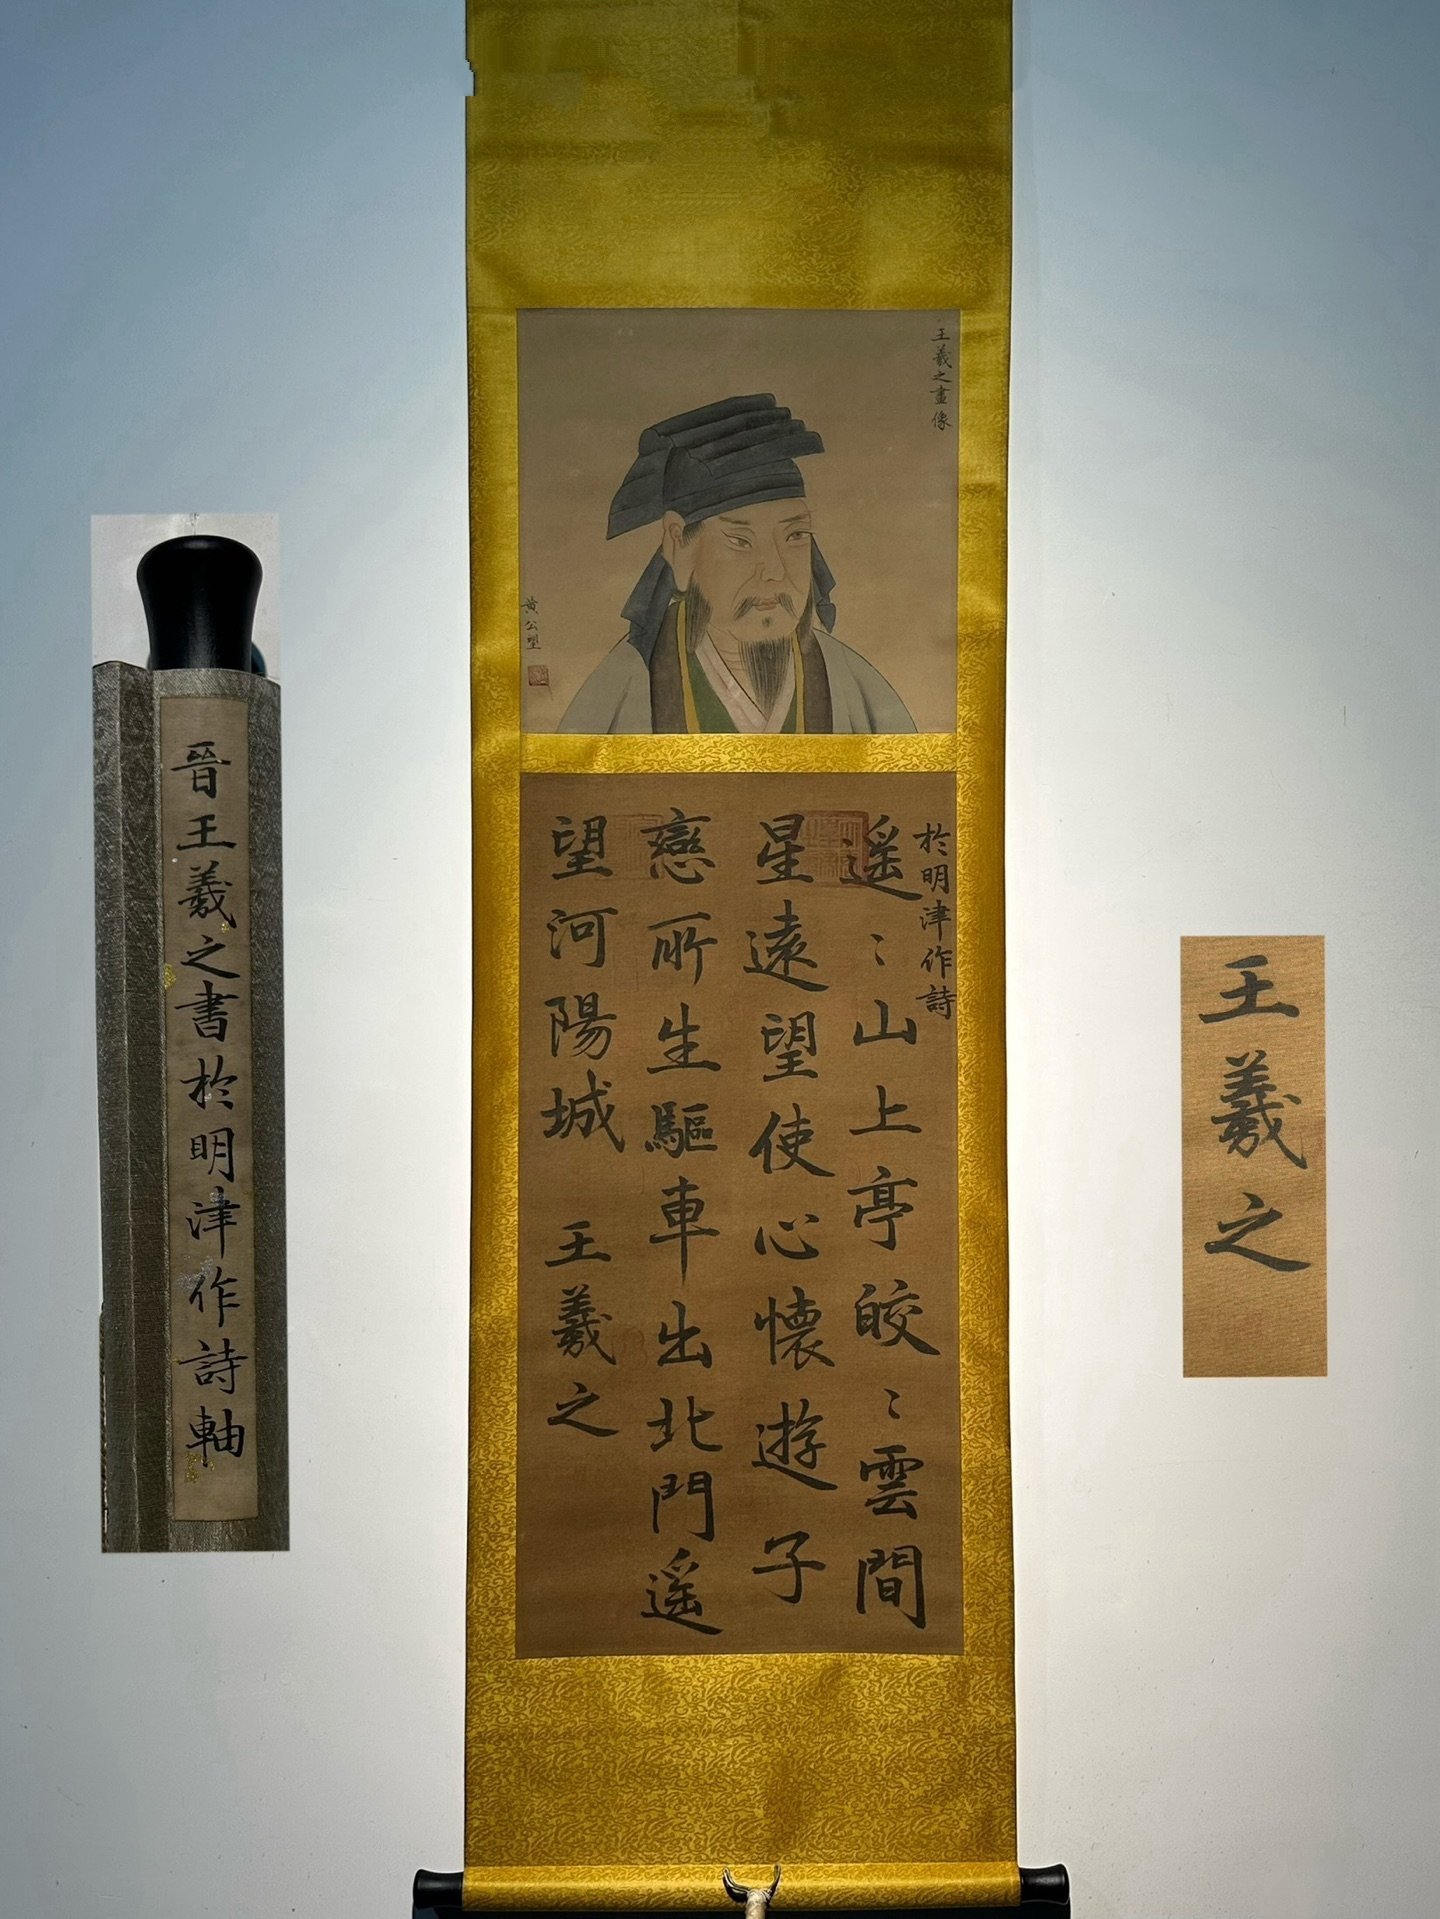 王羲之畫像
黃公望
於明津作詩
遥〻山上亭皎〻雲間
星遠望使心懷遊子
戀所生驅車出北門遥
望河陽城 王羲之
晉王羲之書於明津作詩軸
王羲之